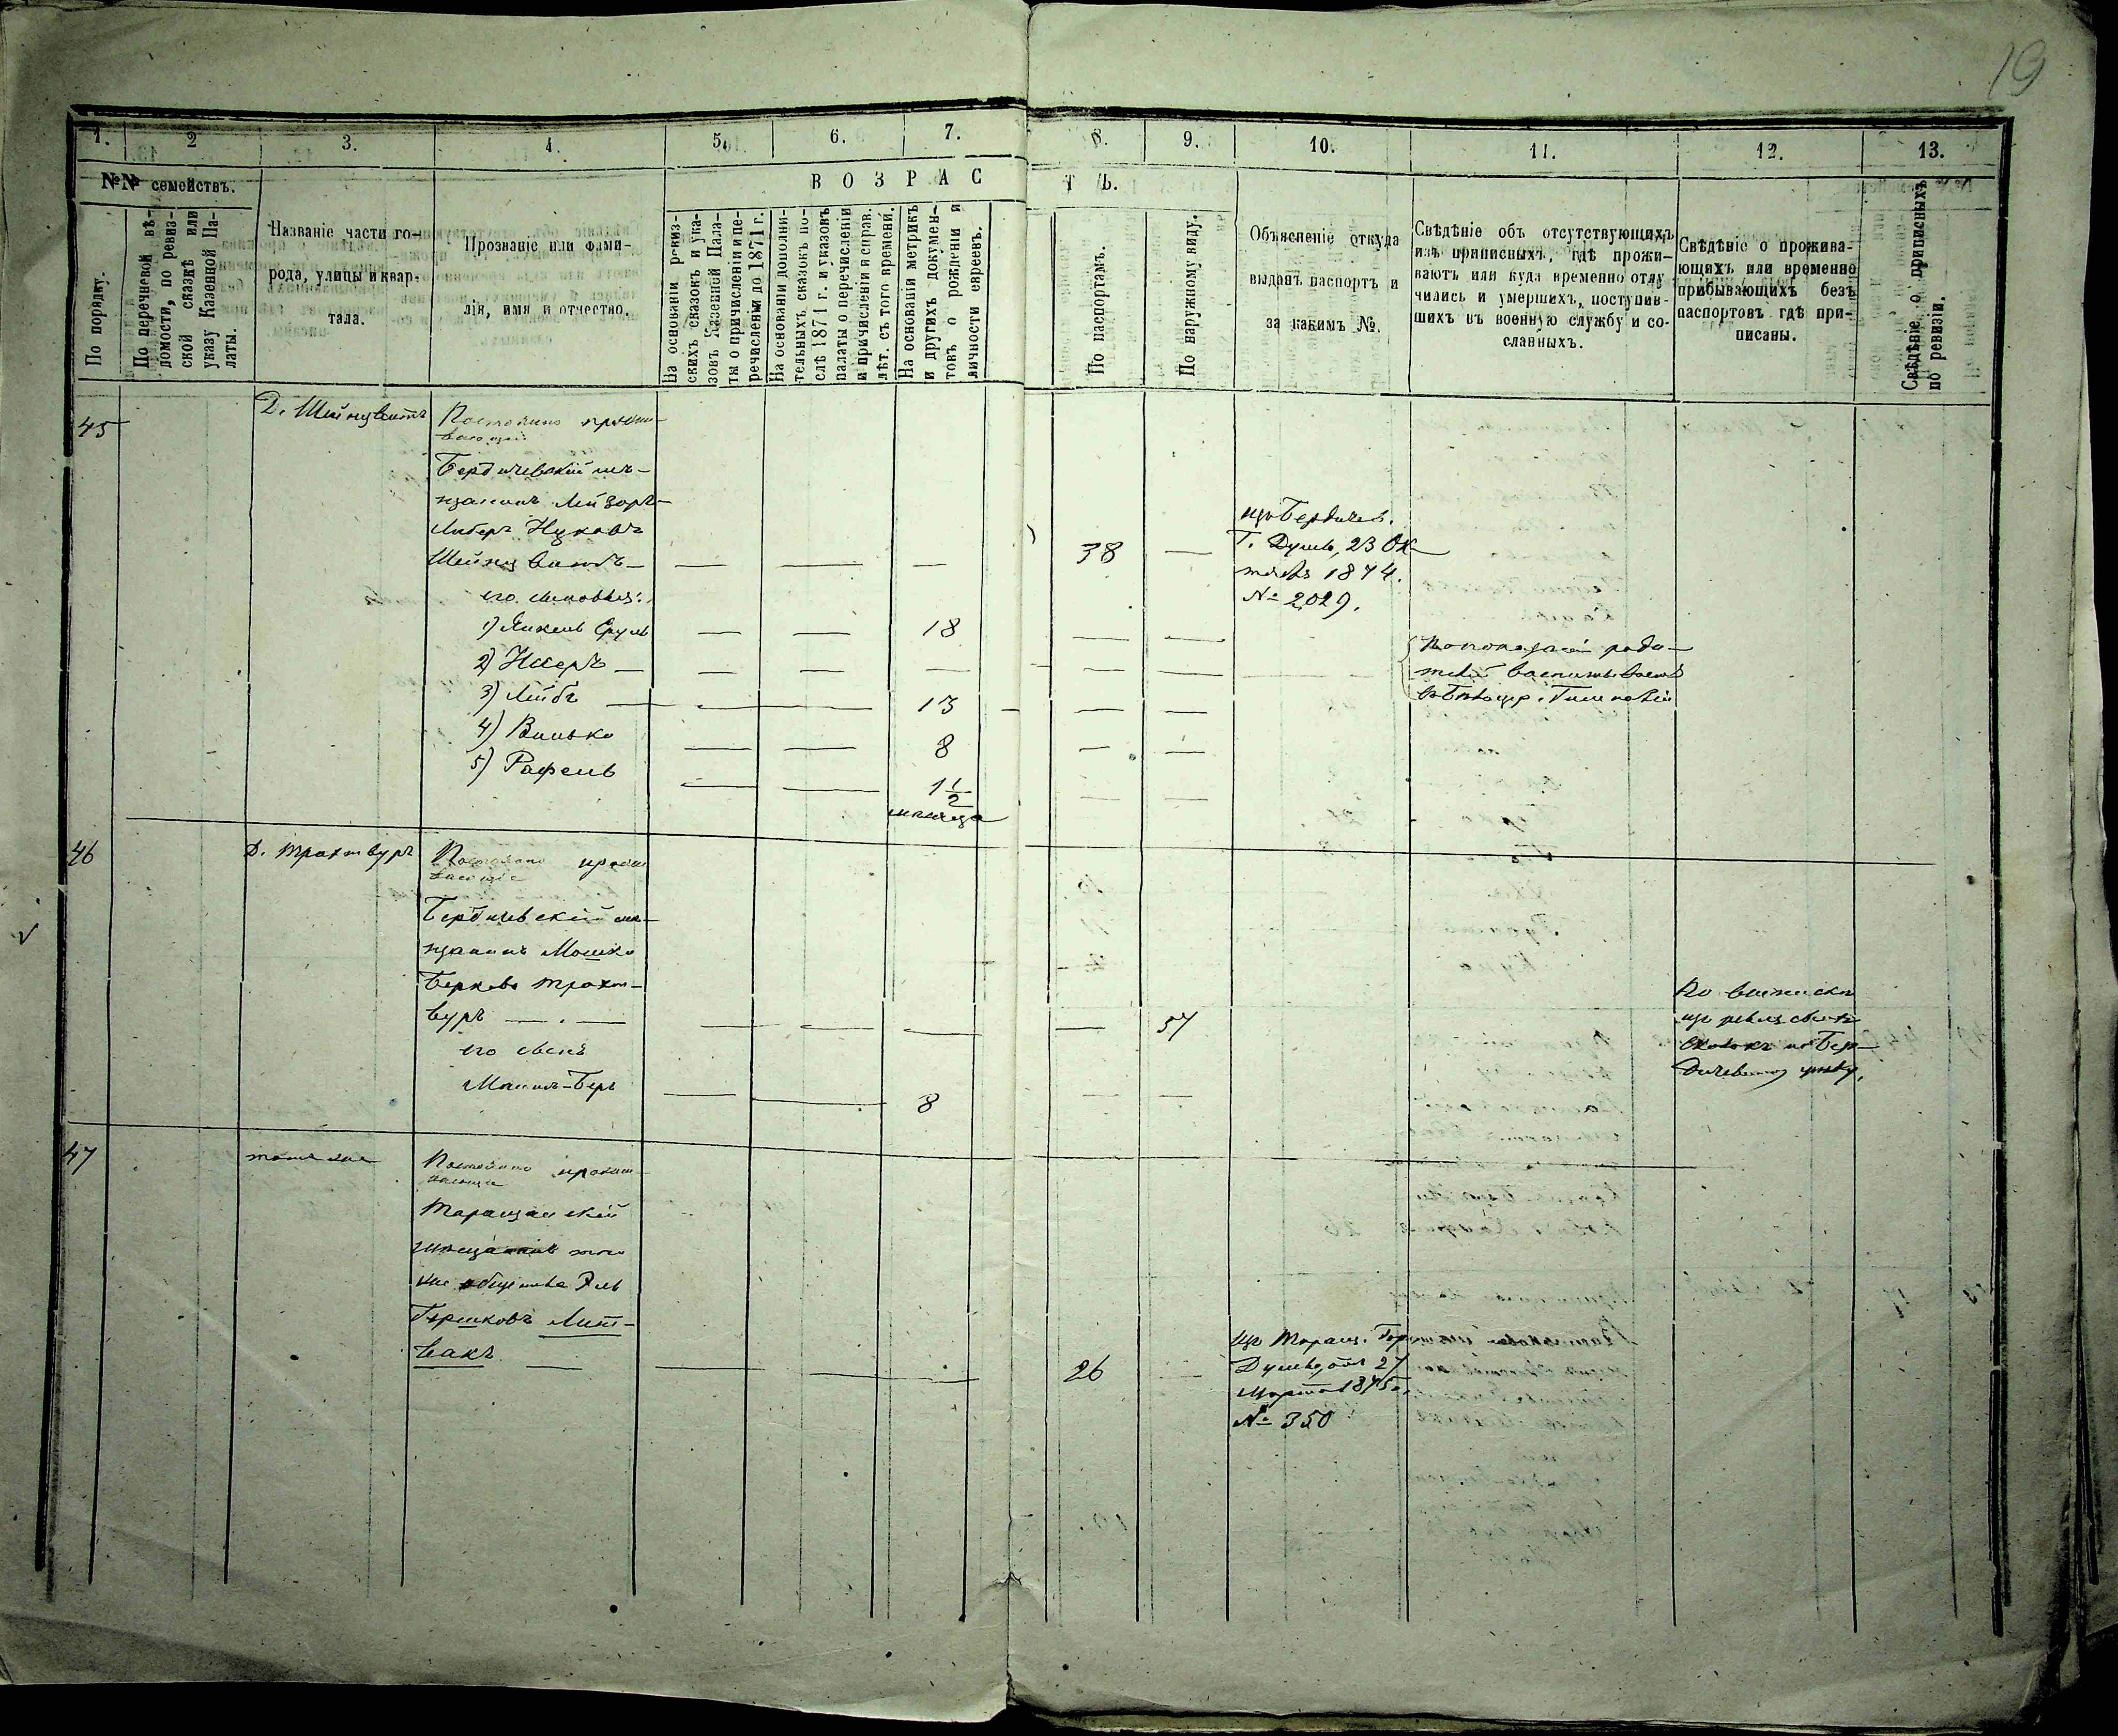 19
1. 2 3. 4. 5. 6. 7. 8. 9. 10. 11. 12. 13.
№№ семействъ.
В О З Р А С Т Ъ.
По порядку.
По перечневой вѣ-
домости, по ревиз-
ской сказкѣ или
указу Казенной Па-
латы.
Названіе части го-
рода, улицы и квар-
тала.
Прозваніе или фами-
лія, имя и отчество.
На основаніи ревиз-
скихъ сказокъ и ука-
зовъ Казенной Пала-
ты о причисленіи и пе-
речисленіи до 1871 г.
На основаніи дополни-
тельныхъ сказокъ по-
слѣ 1871 г. и указовъ
палаты о перечисленіи
и причисленіи я справ.
лѣт. съ того времени.
На основаніи метрикъ
и другихъ докумен-
товъ о рожденіи и
личности евреевъ.
По паспортамъ.
По наружному виду.
Объясненіе откуда
выданъ паспортъ и
за какимъ №.
Свѣдѣніе объ отсутствующихъ
изъ приписныхъ, гдѣ прожи-
ваютъ или куда временно отлу
чились и умершихъ, поступив-
шихъ въ военную службу и со-
сланныхъ.
Свѣдѣніе о прожива-
ющихъ или временно
прибывающихъ безъ
паспортовъ гдѣ при-
писаны.
Свѣдѣніе о приписныхъ
по ревизіи.
45
Д. Шейнцвитъ
Постоянно прожи-
вающій
Бердичевскій мѣ-
щанинъ Лейзоръ-
Либеръ
Шейнцвитъ —
38
изъ Бердичев.
Г. Думы, 23 Ок-
тября 1874.
№ 2029.
его сыновья:
1) Янкель Сруль 18
2) —
3) Лейба 13
4) Волько 8
5) Рафель 1½
мѣсяца
роди-
телей воспитывается
46
Д. Трахтвуръ
Постоянно прожи
вающіе
Бердичевскій мѣ-
щанинъ Мошко
Берковъ Трахт-
вуръ — 57
По выписки
изъ
по Бер-
дичевскому уѣзду.
его сынъ
8
47
тамъ же
Постоянно прожи-
вающіе
Таращанскій
мѣщанинъ того
же общества
Гершковъ Лит-
вакъ — 26
изъ Таращ. Гор.
Думы, отъ 27
Марта 1875 г.
№ 350